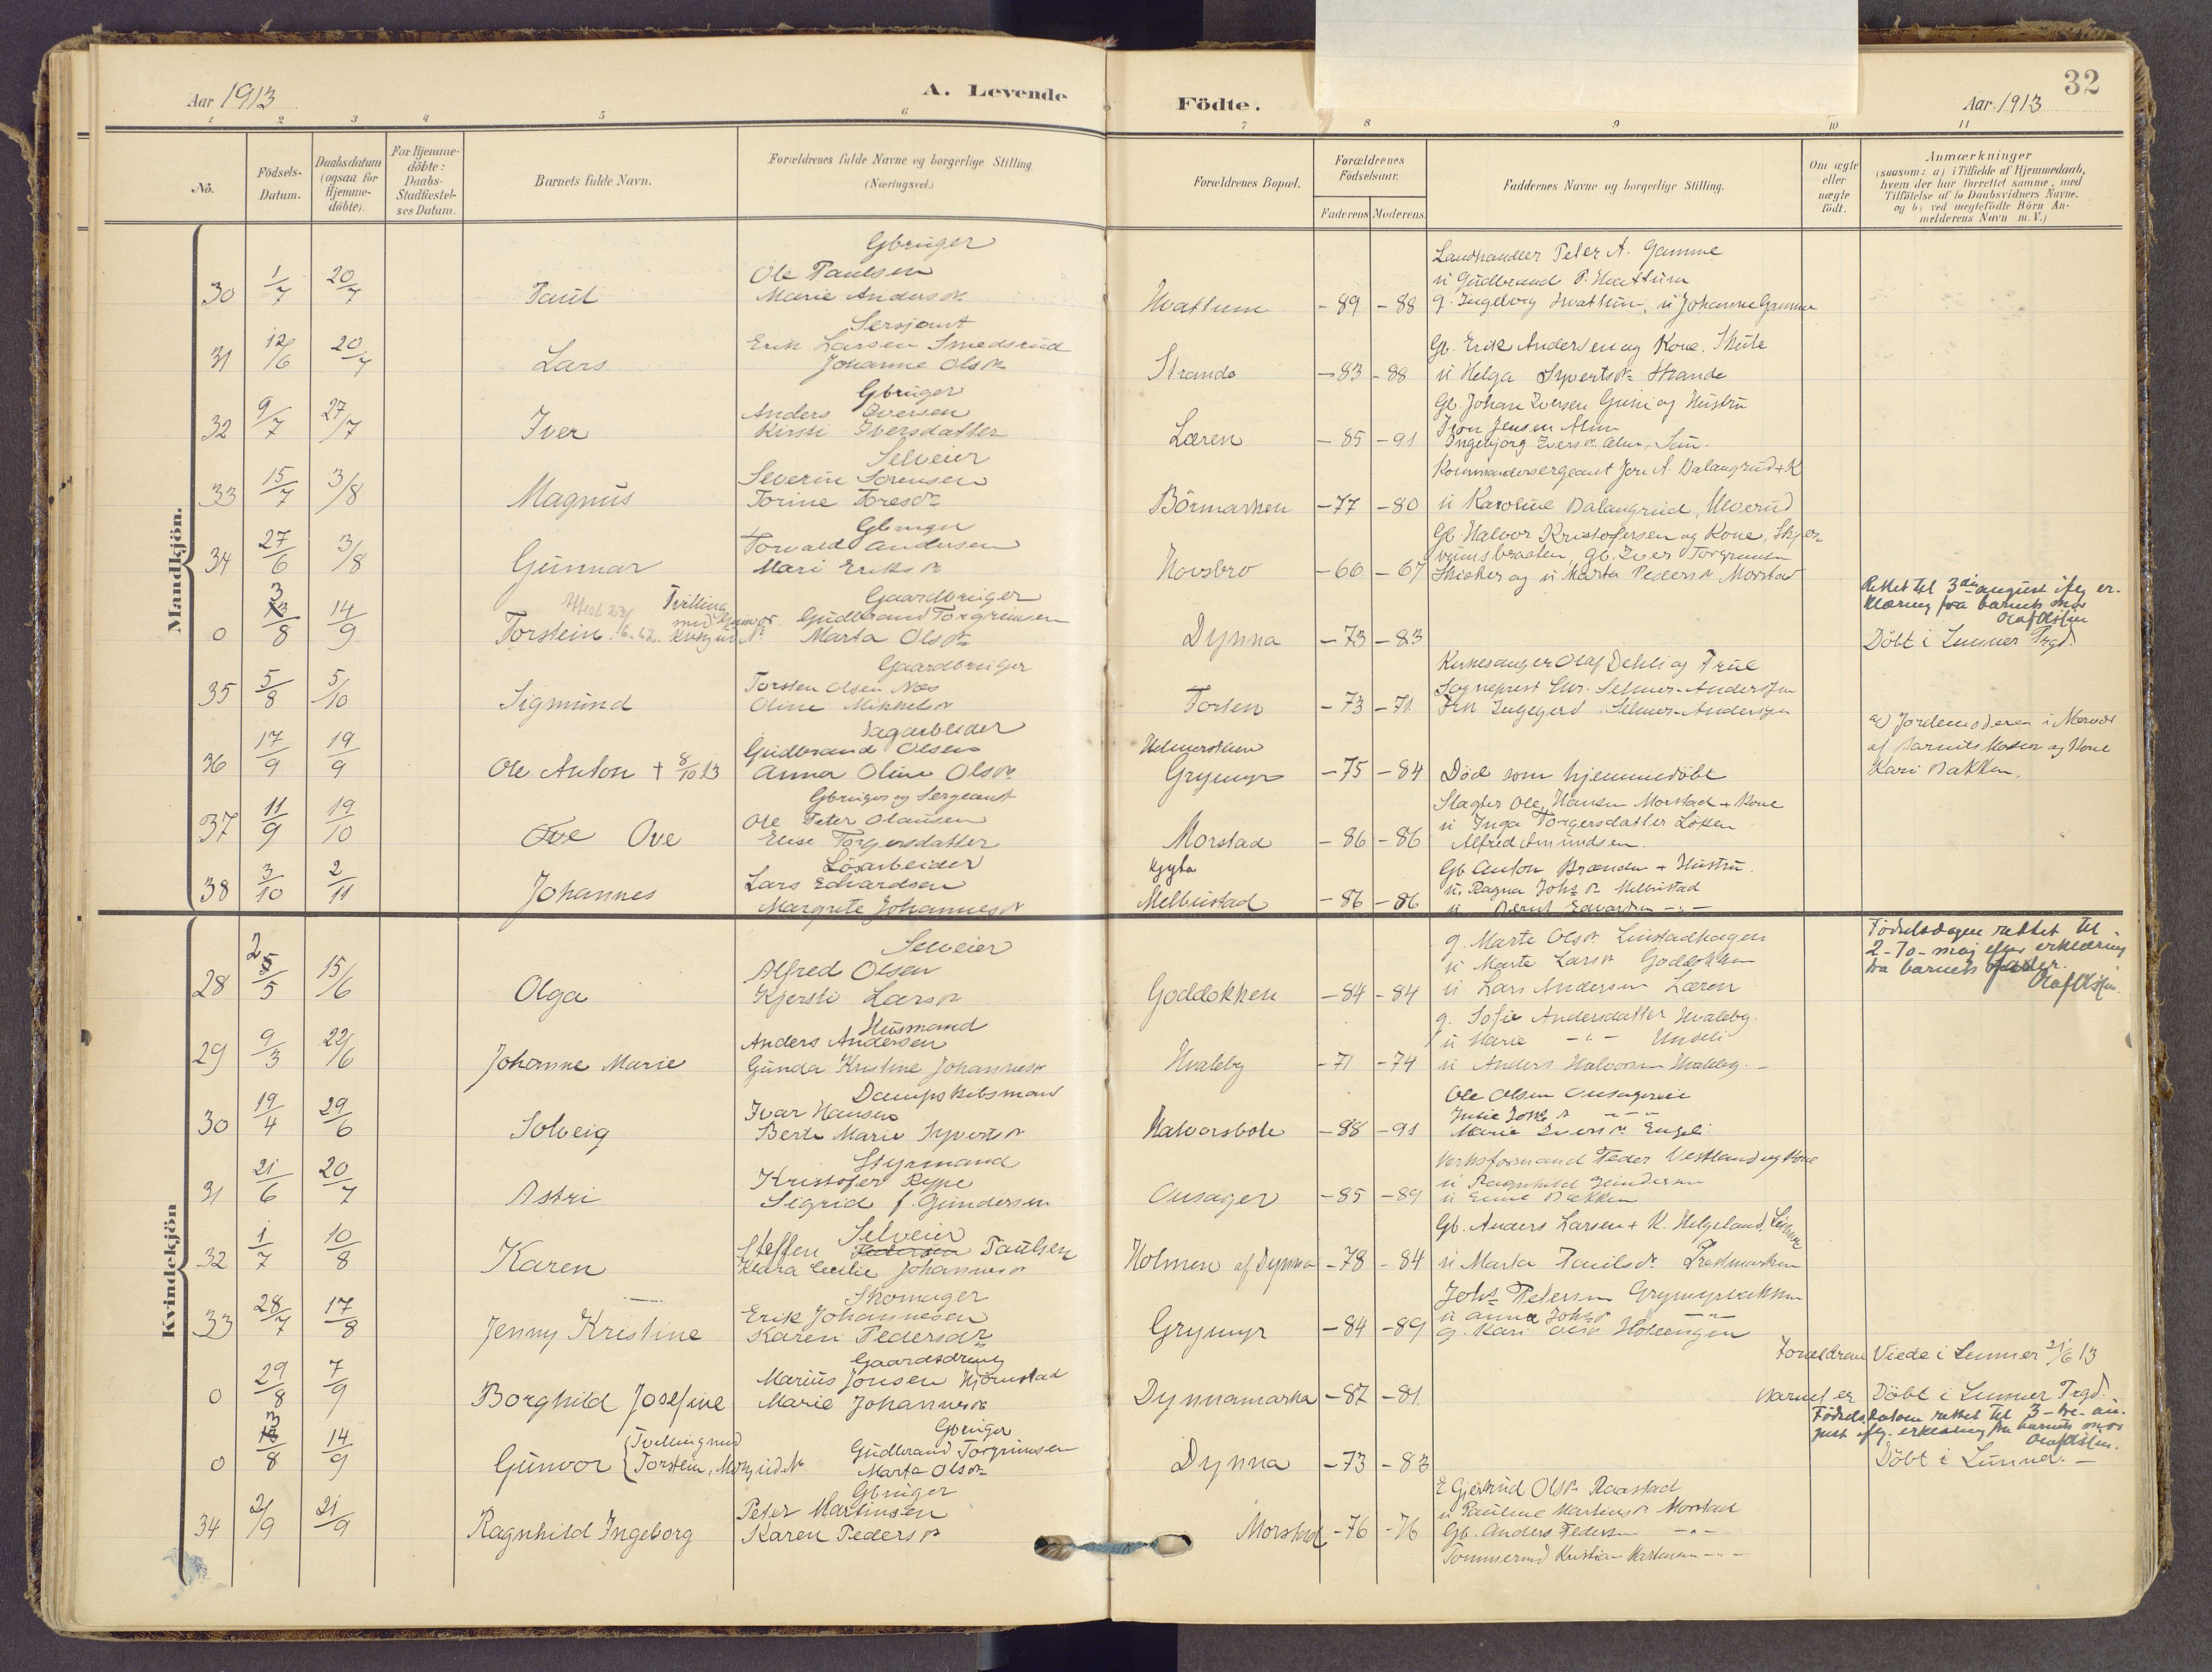 Aar 1913
A. Levende
Födte.
Aar 1913
32
1 2 3 4 5 6 7 8 9 10 11
No.
Födsels-
Datum.
Daabsdatum
(ogsaa for
Hjemme-
döbte).
For Hjemme-
döbte:
Daabs-
Stadfæstel-
ses Datum.
Barnets fulde Navn.
Forældrenes fulde Navne og borgerlige Stilling
(Næringsvei.)
Forældrenes Bopæl.
Forældrenes
Födselsaar.
Faderens Moderens.
Faddernes Navne og borgerlige Stilling.
Om ægte
eller
uægte
födt.
Anmærkninger
(saasom: a) i Tilfælde af Hjemmedaab,
hvem der har forrettet samme, med
Tilföielse af to Daabsvidners Navne,
og b) ved uægtefödte Börn An-
melderens Navn m. V.)
Mandkjön.
Gbruger
Landhandler Peter A. Gamme
Ole Paulsen
u Gudbrand P. Hvattum
30 1/7 20/7 Paul Marie Andersdr. Hvattum -89 -88 g. Ingeborg Hvattum, u Johanne Gamme
Sersjant
Erik Larsen Smedsrud
Gb. Erik Andersen og Kone.
31 12/6 20/7 Lars Johanne Olsdr. Strande -83 -88 u Helga Syvertsdr. Strande
Gbruger
Gb. Johan Iversen Grini og Hustru
Anders Iversen
32 9/7 27/7 Iver Kirsti Iversdatter Læren -85 -91
Selveier
Severin Sorensen
33 15/7 3/8 Magnus Torine Toresdr. Börmarken -77 -80 u Karoline Dalangrud, Ulverud
Gbruger
Gb. Halvor Kristofersen og Kone,
Torvald Andersen
34 27/6 3/8 Gunnar Mari Eriksdr. Hovsbro -66 -67 og u Marta Pedersdr. Morstad
Rettet til 3die august iflg er-
klæring fra barnets mor
Olaf Olsen
Gaardbruger
Tvilling
med Gunvor
Gudbrand Torgrimsen
0 3/8 14/9 Torstein Marta Olsdr. Dynna -73 -83 Döbt i Lunner Prgd.
Gaardbruger
Kirkesanger Olaf Dehli og Frue
Torsten Olsen Næs
Sogneprest Chr. Selmer-Anderssen
35 5/8 5/10 Sigmund Oline Mikkelsdr. Torsen -73 -71 Frk Ingegerd Selmer-Anderssen
Sagarbeider
Gudbrand Olsen
a) Jordemoderen i Nærvær
af Barnets Moder og Kone
Kari Bakken.
36 17/9 19/9 Ole Anton + 8/10 13 Anna Oline Olsdr. Grymyr -75 -84 Död som hjemmedöbt
Gbruger og Sergeant
Slagter Ole Hansen Morstad + Kone
Ole Peter Olausen
u Inga Torgersdatter Löken
37 11/9 19/10 Ove Ove Elise Torgersdatter Morstad -86 -86 Alfred Amundsen.
Lösarbeider
Gb Anton Brænden + Hustru.
Lars Edvardsen
u. Ragna Johs dr. Melbustad
38 3/10 2/11 Johannes Margrete Johannesdr. Melbustad -86 -86 u Bernt Edvardsen -"-
Kvindekjön
Selveier
g. Marte Olsdr. Linstadhagen
Födselsdagen rettet til
2-to- maj efter erklæring
fra barnets fader.
Olaf Olsen.
Alfred Olsen
u Marte Larsdr. Goddokken
28 2/5 15/6 Olga Kjersti Larsdr. Goddokken -84 -84 u Lars Andersen Læren
Husmand
g. Sofie Andersdatter Hvaleby.
Anders Andersen
u Marie -"- Undeli
29 9/3 22/6 Johanne Marie Gunda Kristine Johannesdr. Hvaleby -71 -74 u Anders Halvorsen Hvaleby.
Dampskibsmand
Ole Olsen Onsagereie
Ivar Hansen
30 19/4 29/6 Solveig Berte Marie Syvertsdr. Halvorsbole -88 -91 Marie Iversdr. Engeli
Styrmand
Verksformand Peder Vestland og Kone
Kristofer Rype
u Ragnhild Gundersen
31 21/6 20/7 Astri Sigrid f. Gundersen Onsager -85 -89 u Emma Bakken
Selveier
Gb. Anders Larsen + K. Helgeland,
Steffen Pedersen Paulsen
32 1/7 10/8 Karen Klara Cecilie Johannesdr. Holmen af Dynna -78 -84 u Marta Paulsdr.
Skomager
Johs Petersen
Erik Johannesen
u Anna Johsdr. -"-
33 28/7 17/8 Jenny Kristine Karen Pedersdr. Grymyr -84 -89 g. Kari Olsdr. Holeengen
Gaardsdreng
Forældrene Viede i Lunner 21/6 13
Marius Jonsen Hjörnstad
0 29/8 7/9 Borghild Josefine Marie Johannesdr. Dynnamarka -87 -81 Barnet er Döbt i Lunner Prgd.
Födselsdatoen rettet til 3-dje au-
gust iflg. erklæring fra barnets mor
Olaf Olsen.
Gbruger
Tvilling med
Gudbrand Torgrimsen
0 3/8 14/9 Gunvor Torstein, Marta Olsdr. Dynna -73 -83 Döbt i Lunner.
Gbruger
E Gjertrud Olsdr. Raastad
Peter Martinsen
u Pauline Martinsdr. Morstad
34 2/9 21/9 Ragnhild Ingeborg Karen Pedersdr. Morstad -76 -76 Gb. Anders Pedersen -"-
Tömmermd Kristian Martinsen -"-